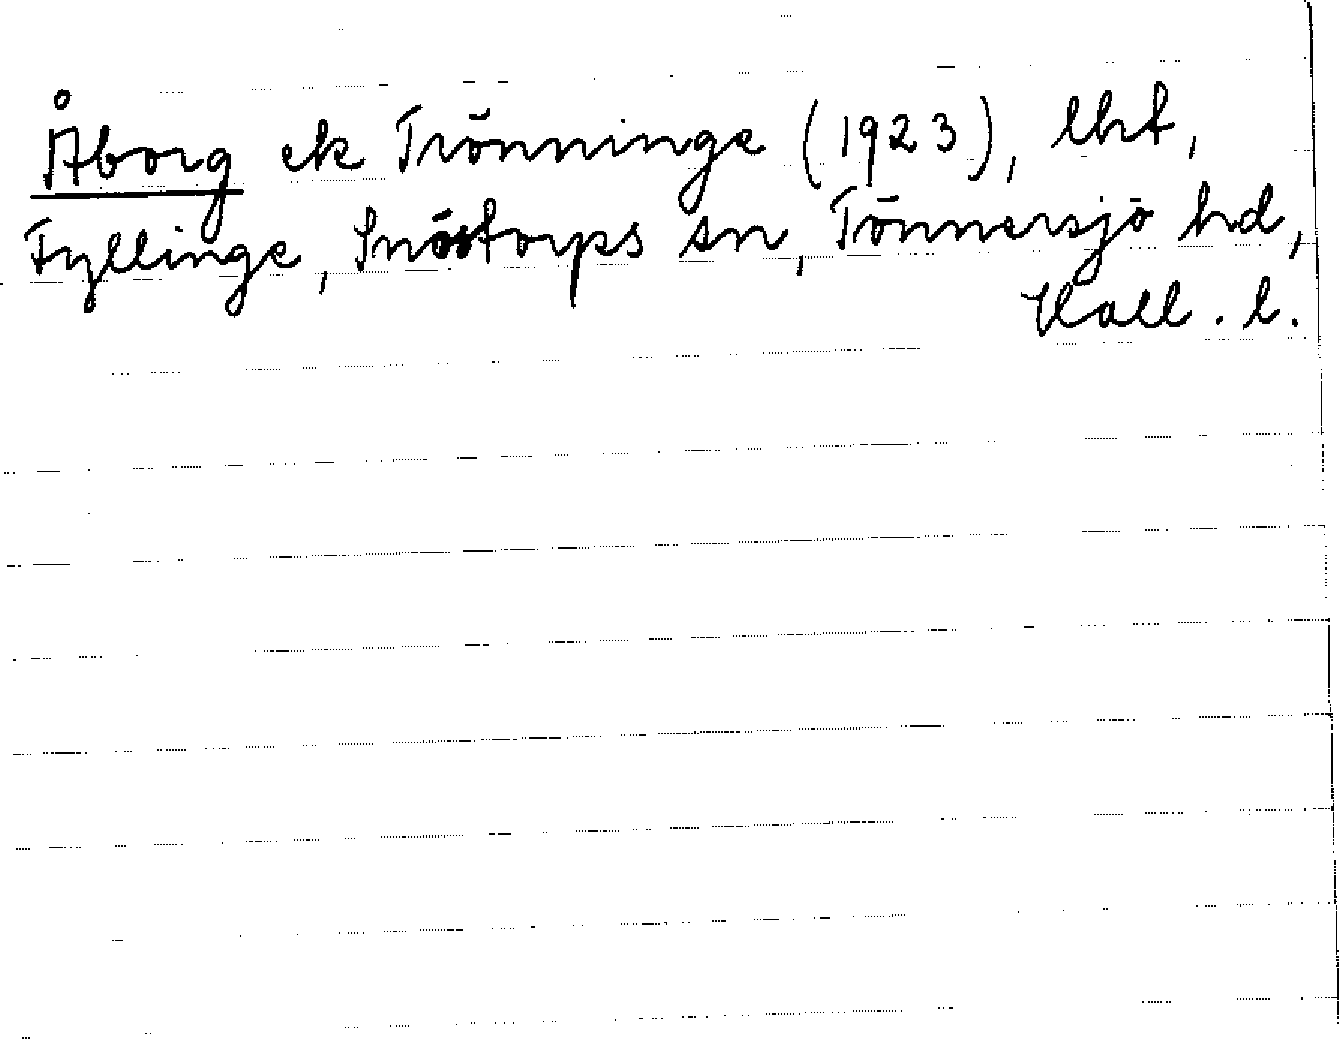 Åborg ek Trönninge (1923), lht,
Fyllinge, Snöstorps sn, Tönnersjö hd,
Hall. l.